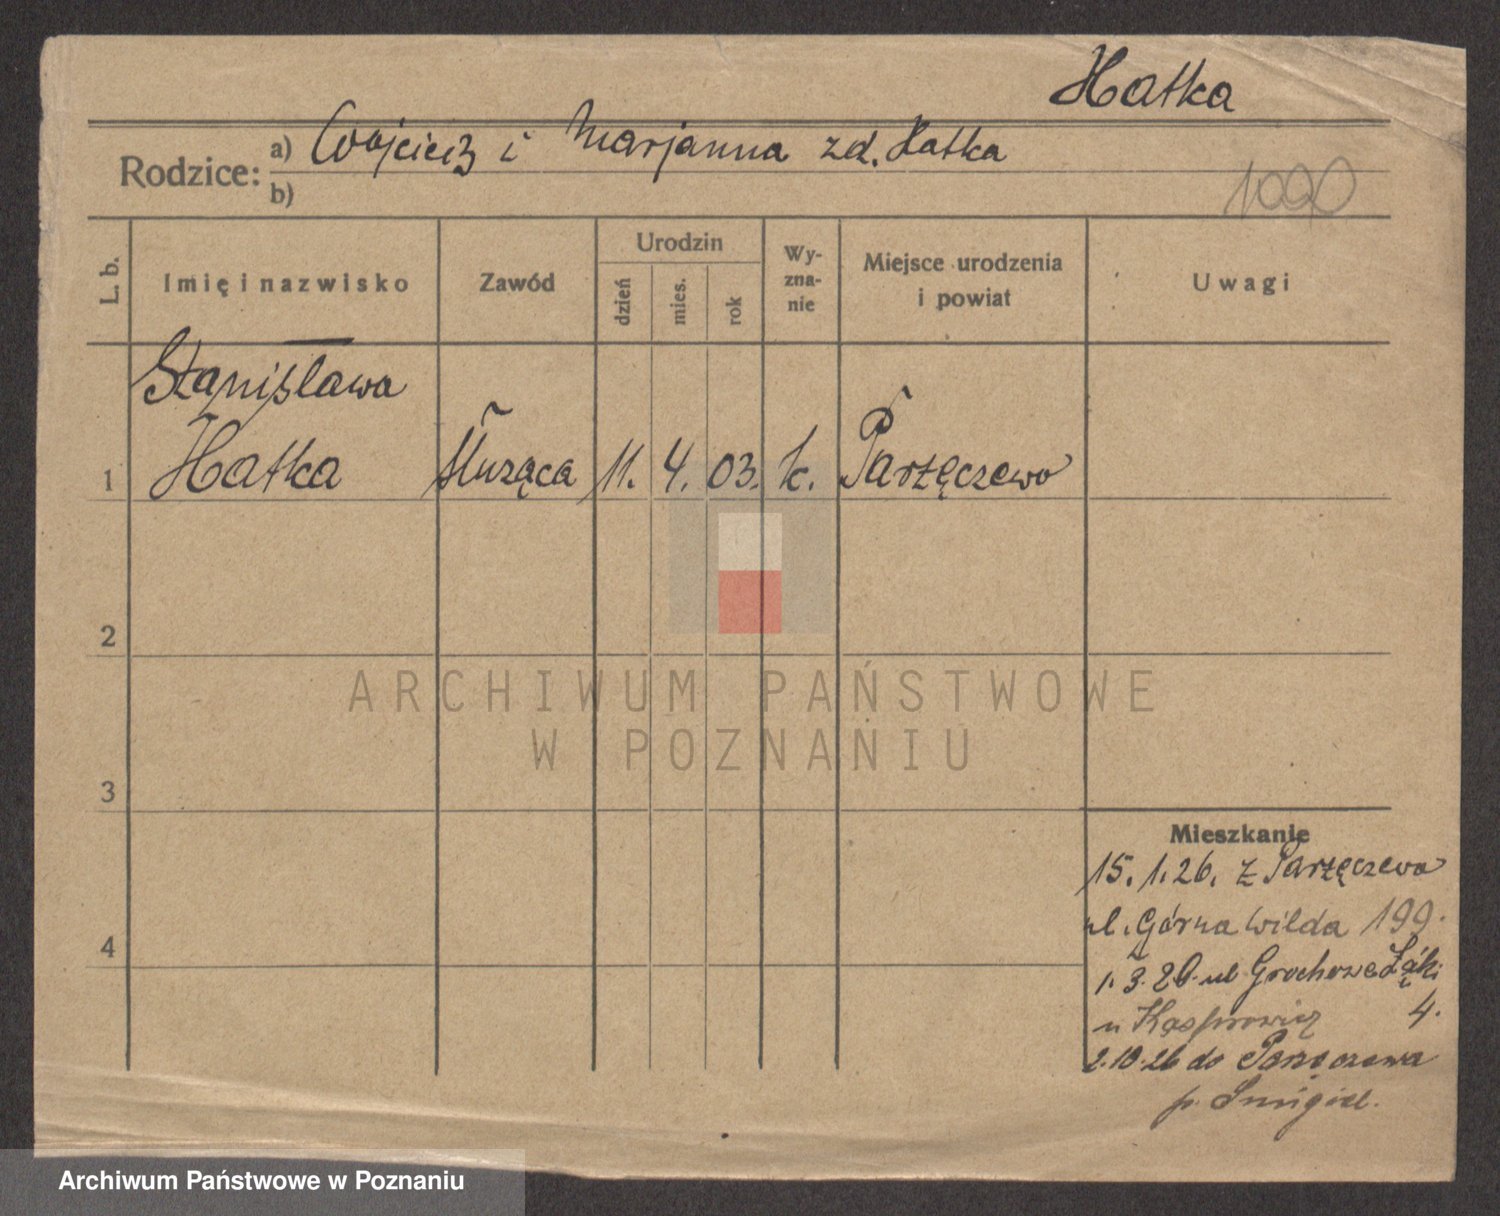 Hatka
Rodzice: a) Wojciech i Marjanna zd. Hatka
b)
1090
L. b.
Imię i nazwisko
Zawód
Urodzin
dzień
mies.
rok
Wy-
zna-
nie
Miejsce urodzenia
i powiat
Uwagi
Stanisława
1 Hatka służąca 11. 4. 03. k. Parzęczewo
2
3
4
Mieszkanie
15. 1. 26. z Parzęczewa
ul. Górna Wilda 199.
1. 3. 26. ul Grochowe Łąki
u Kasprowicz 4.
2.10.26 do Parzęczewa
p. Śmigiel.
ARCHIWUM PAŃSTWOWE
W POZNANIU
Archiwum Państwowe w Poznaniu